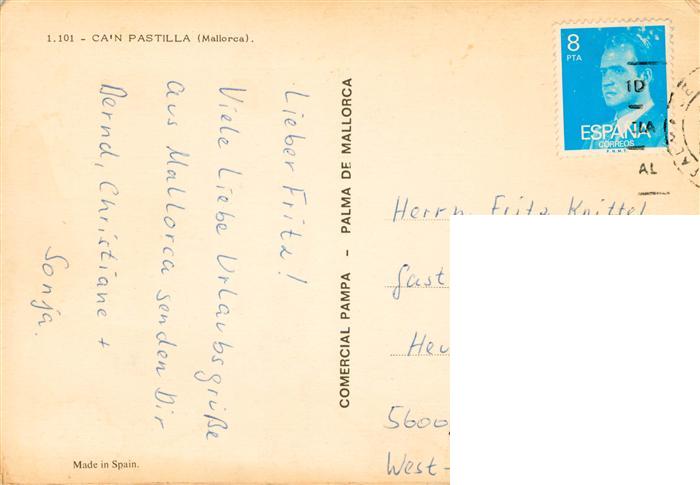 1.101 - CA'N PASTILLA (Mallorca).
Lieber Fritz!
Viele liebe Urlaubsgrüße
aus Mallorca senden Dir
Bernd, Christiane +
Sonja.
Made in Spain.
COMERCIAL PAMPA - PALMA DE MALLORCA
8
PTA
ESPAÑA
CORREOS
F.N.M.T.
AL
Herrn Fritz Knittel
Gast
Heu
5600
West-